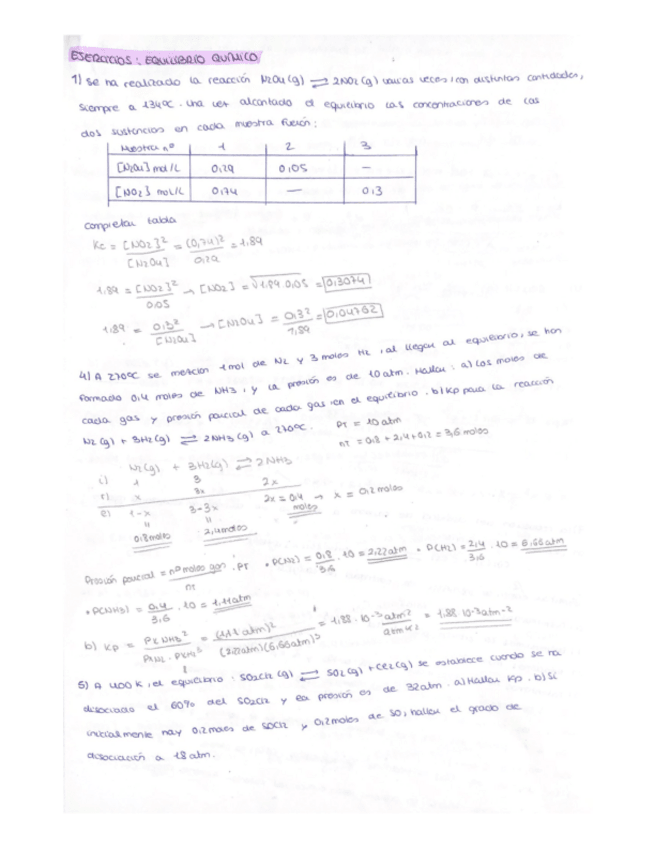 EJERCICIOS: EQUILIBRIO QUÍMICO
1) Se ha realizado la reacción N2O4(g) ⇌ 2NO2(g) varias veces, con distintas cantidades,
siempre a 134ºC. Una vez alcanzado el equilibrio las concentraciones de las
dos sustancias en cada muestra fueron:
Muestra nº 1 2 3
[N2O4] mol/L 0,29 0,05 —
[NO2] mol/L 0,74 — 0,3
completar tabla
Kc = [NO2]² / [N2O4] = (0,74)² / 0,29 = 1,89
1,89 = [NO2]² / 0,05 → [NO2] = √1,89·0,05 = 0,3074
1,89 = 0,3² / [N2O4] → [N2O4] = 0,3² / 1,89 = 0,04762
4) A 270ºC se mezclan 1 mol de N2 y 3 moles H2, al llegar al equilibrio, se han
formado 0,4 moles de NH3, y la presión es de 10 atm. Hallar: a) Los moles de
cada gas y presión parcial de cada gas, en el equilibrio. b) Kp para la reacción
N2(g) + 3H2(g) ⇌ 2NH3(g) a 270ºC.
PT = 10 atm
nT = 0,8 + 2,4 + 0,2 = 3,6 moles
N2(g) + 3H2(g) ⇌ 2NH3
i) 1 3 2x
r) x 3x
e) 1-x 3-3x 2x = 0,4 moles → x = 0,2 moles
0,8 moles 2,4 moles
Presión parcial = nº moles gas / nT · PT • P(N2) = 0,8 / 3,6 · 10 = 2,22 atm • P(H2) = 2,4 / 3,6 · 10 = 6,66 atm
• P(NH3) = 0,4 / 3,6 · 10 = 1,11 atm
b) Kp = P NH3² / P N2 · P H2³ = (1,11 atm)² / (2,22 atm)(6,66 atm)³ = 1,88·10-3 atm² / atm = 1,88·10-3 atm-2
5) A 400 K, el equilibrio: SO2Cl2(g) ⇌ SO2(g) + Cl2(g) se establece cuando se ha
disociado el 60% del SO2Cl2 y la presión es de 32 atm. a) Hallar Kp. b) Si
inicialmente hay 0,2 moles de SOCl2 y 0,2 moles de SO, hallar el grado de
disociación a 18 atm.